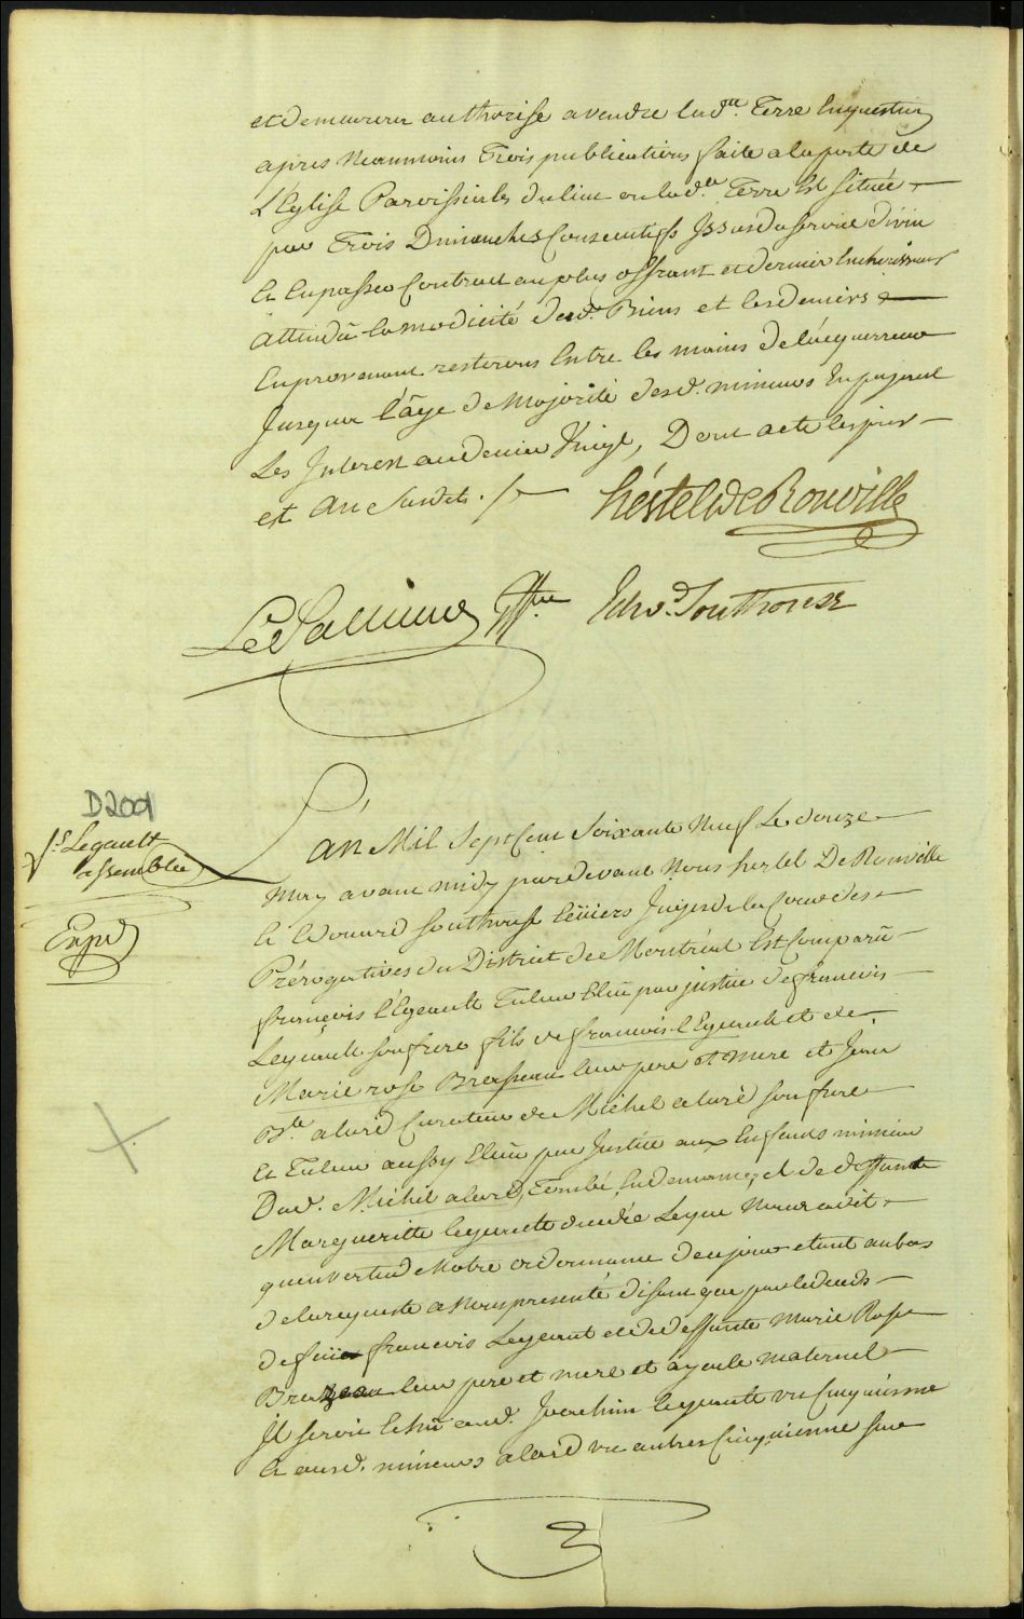 et demeurera authorisé a vendre lad.te Terre En question
apres Neanmoins Trois publications faite a la porte de
L'Eglise Paroissialle du lieu ou lad.te Terre Est située
par Trois Dimanches Consecutifs Issue du service divin
Et En passer Contrat au plus offrant et dernier Encherisseur
attendû la modicité desd. Biens et les deniers
En provenant resterons Entre les mains de l'acquerreur
Jusqua l'âge de Majorité desd. mineurs En payant
Les Interest au denier Vingt, Dont acte les jour
et An Susdits ./.
hértel De Rouville
Edwd. Southouse
Gffier
D2001
f.s Legault
assemblée
Expd
L'an Mil Sept Cent Soixante Neuf Le douze
may avant midy pardevant Nous hertel De Rouville
Et Edouard Southouse Ecüiers Juges de la Cour des
Prérogatives du District de Montréal Est Comparû
françois l'Egeault Tuteur Elû par justice de
Legeault son frere fils de francois l'Egeault et de
Marie rose Braseau leur pere et mere et Jean
B.te alard Curateur de Michel alard son frere
Et Tuteur aussy Eleu par Justice aux Enfants mineur
Dud. Michel alard, Tombé En demance, et de deffunte
Margueritte legeault
qu'en vertud de Notre ordonnance de ce jour etant au bas
de la requeste a Nous presenté disant que par le deceds
de feüe francois Legeaut et de deffunte Marie Rose
Brazeau leur pere et mere et ayeule maternel
Il seroit Echû aud. Joachim legeault un Cinquiesme
Et aux d. mineurs alard un autre Cinquieme sur